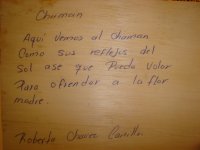 Chaman
Aqui vemos al chaman
Como sus reflejos del
Sol ase que Pueda Volar
Para ofrendar a la flor
madre.
Roberto Chavez Carrillo